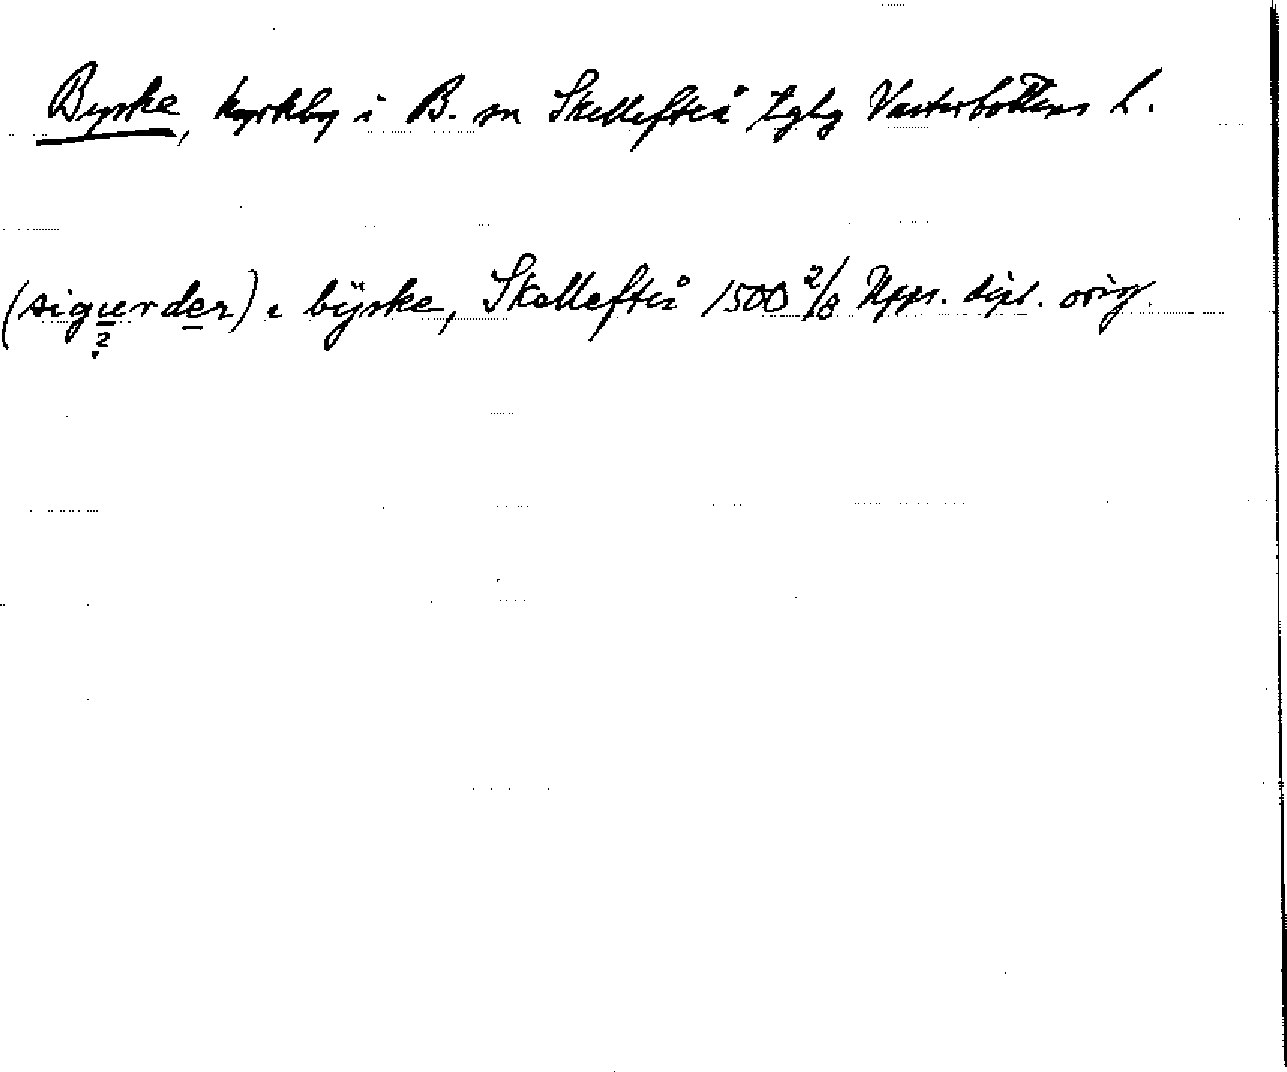 Byske, kyrkby i B. sn Skellefteå tglg Västerbottens l.
(sigurder) i býske, Skellefteå 1500 2/8 Upps. dipl. orig.
2